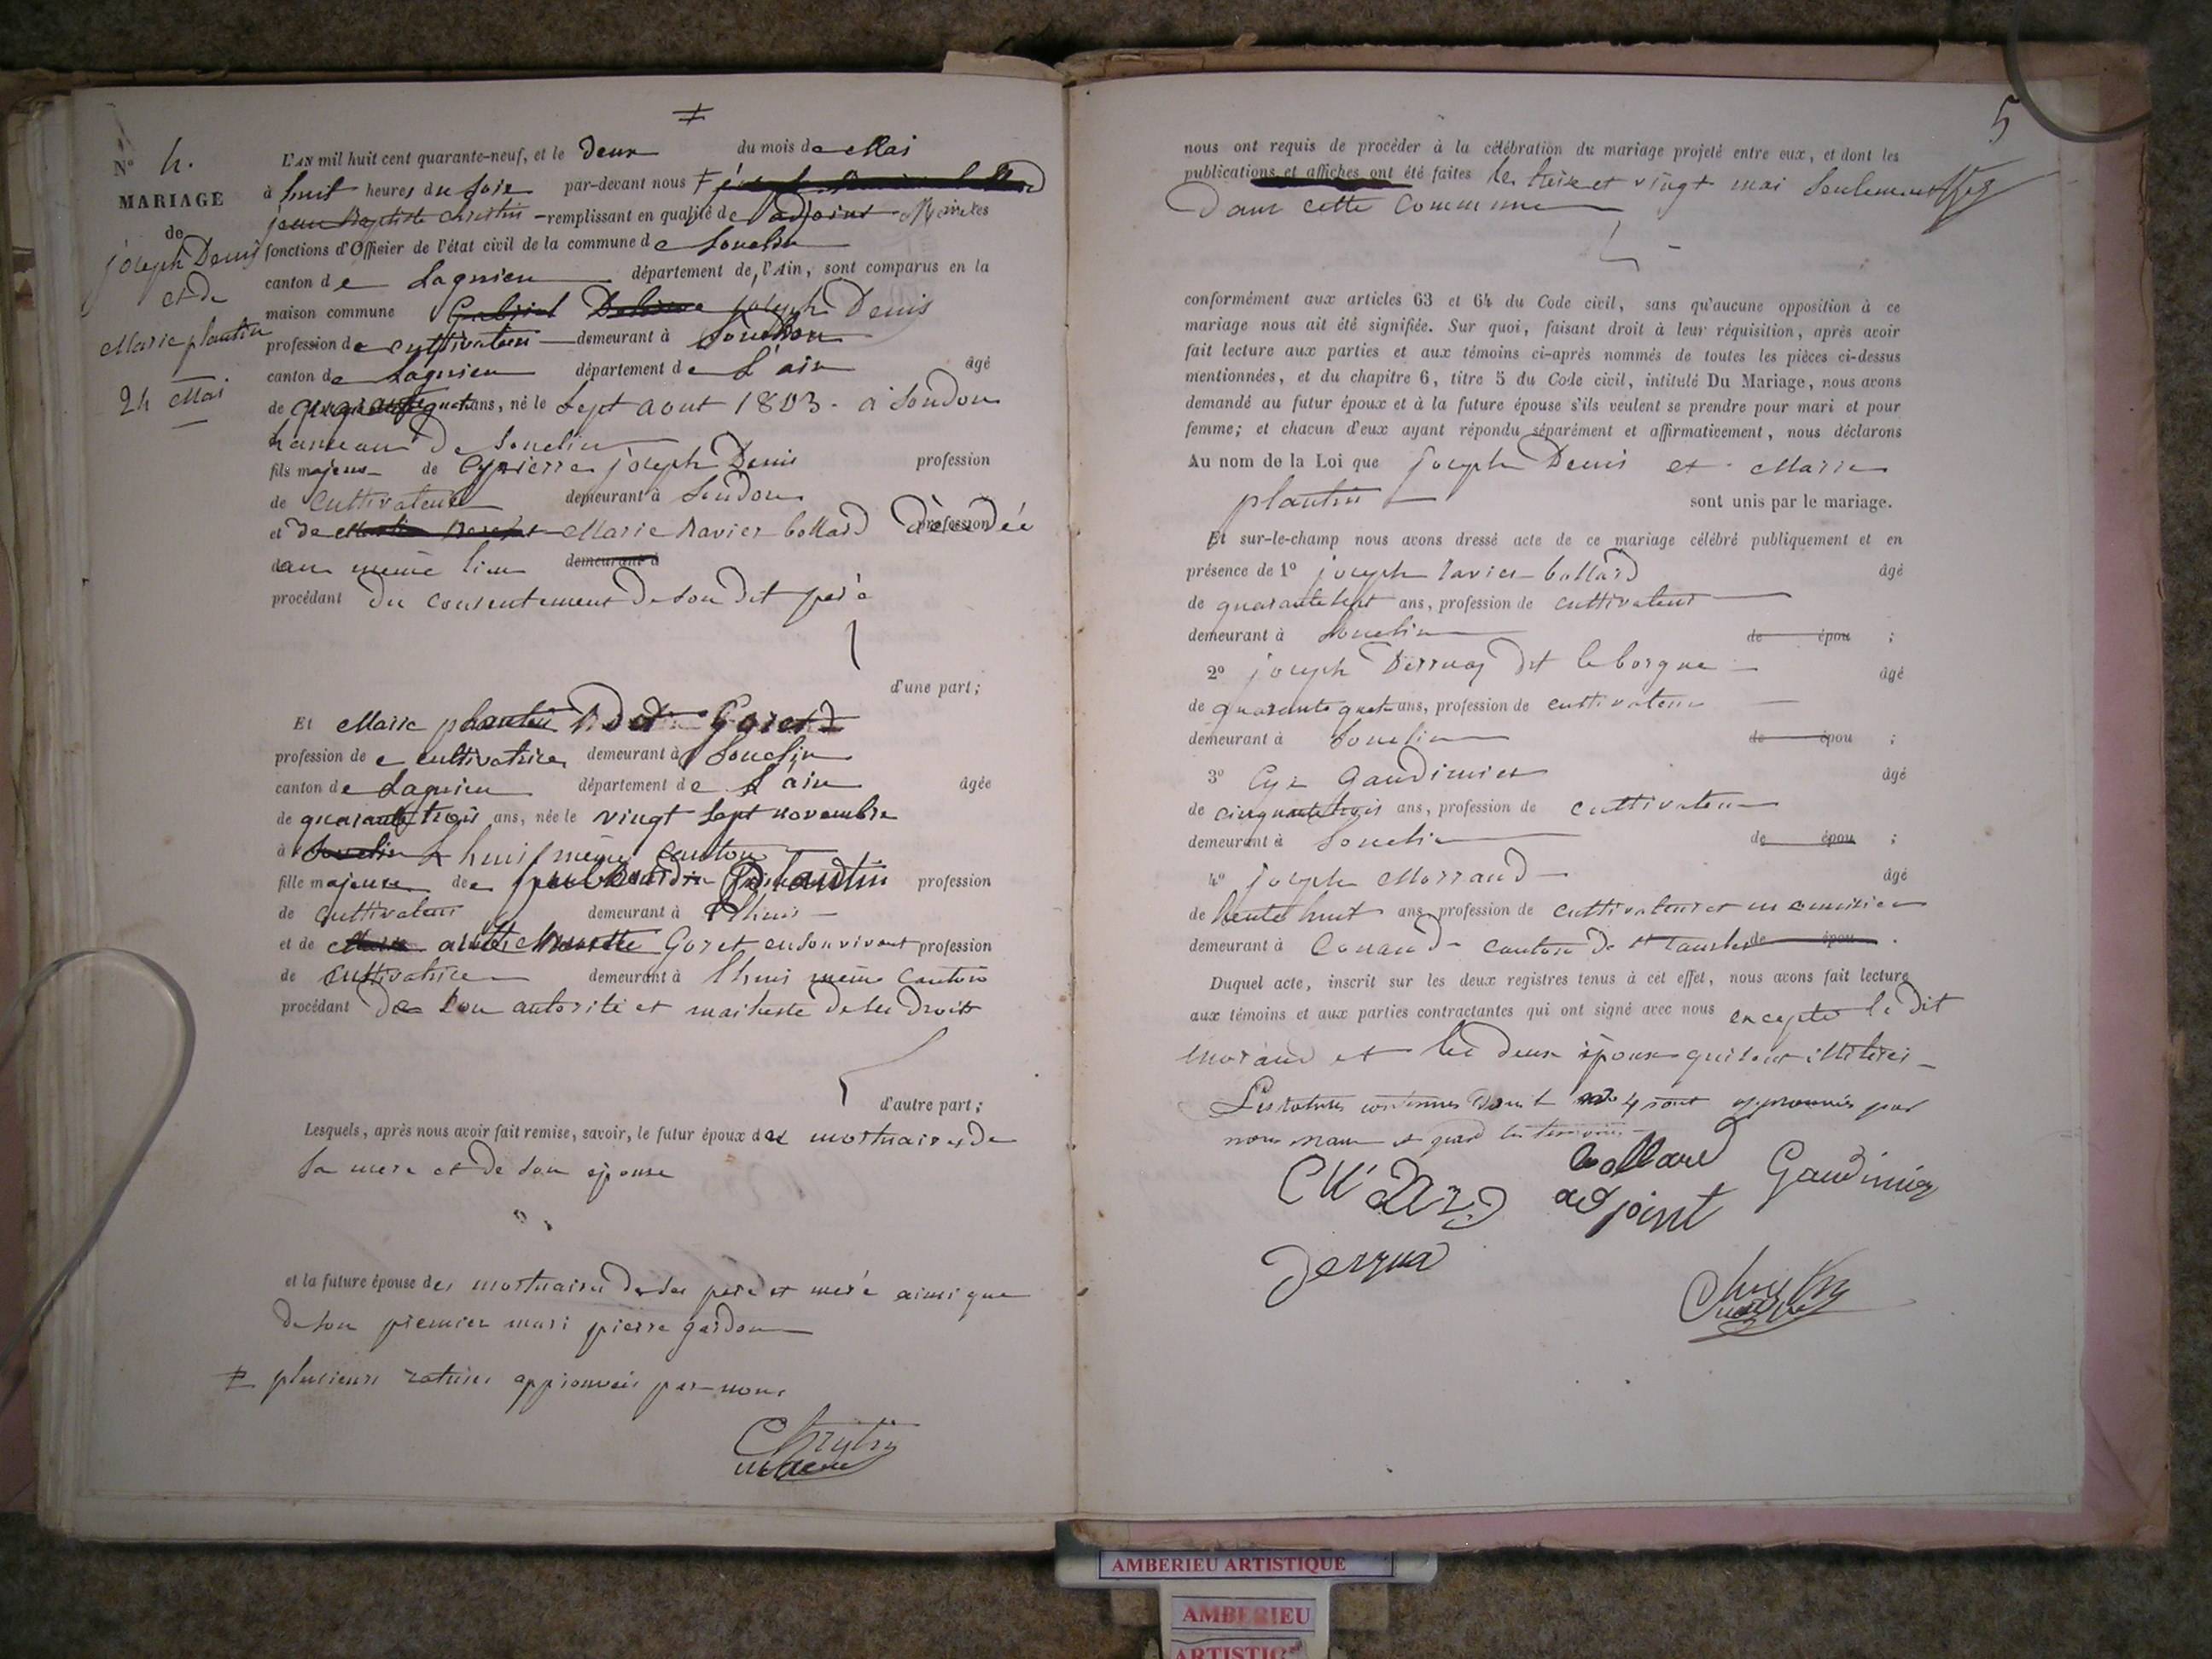 N° 4.
MARIAGE
de
joseph Denis
et de
Marie plantin
24 Mai
L'AN mil huit cent quarante-neuf, et le deux du mois de Mai
à huit heures du soir par-devant nous
jean Baptiste Christin remplissant en qualité de adjoint les
fonctions d'Officier de l'état civil de la commune de Souclin
canton de Lagnieu département de l'Ain, sont comparus en la
maison commune Gabriel joseph Denis
profession de cultivateur demeurant à Soudon
canton de Lagnieu département de L'ain âgé
de ans, né le sept aout 1803 - à Soudon
hameau de Souclin
fils majeur de Cy pierre joseph Denis profession
de cultivateur demeurant à Soudon
et de Marie Ravier bollard profession décédée
au même lieu demeurant à
procédant du consentement de son dit père
d'une part;
Et Marie plantin Goret
profession de cultivatrice demeurant à Souclin
canton de Lagnieu département de L'ain âgée
de quarante trois ans, née le vingt sept novembre
à Souclin Lhuis même canton
fille majeure de plantin profession
de cultivateur demeurant à Lhuis
et de Goret en son vivant profession
de cultivatrice demeurant à Lhuis même canton
procédant de son autorité et maitresse de ses droits
d'autre part;
Lesquels, après nous avoir fait remise, savoir, le futur époux des mortuaires de
sa mere et de son épouse
et la future épouse des mortuaires de ses père et mère ainsi que
de son premier mari pierre gardon
≠ plusieurs ratures approuvées par nous
Christin
maire
5
nous ont requis de procéder à la célébration du mariage projeté entre eux, et dont les
publications et affiches ont été faites les treize et vingt mai seulement
Dans cette commune
conformément aux articles 63 et 64 du Code civil, sans qu'aucune opposition à ce
mariage nous ait été signifiée. Sur quoi, faisant droit à leur réquisition, après avoir
fait lecture aux parties et aux témoins ci-après nommés de toutes les pièces ci-dessus
mentionnées, et du chapitre 6, titre 5 du Code civil, intitulé Du Mariage, nous avons
demandé au futur époux et à la future épouse s'ils veulent se prendre pour mari et pour
femme; et chacun d'eux ayant répondu séparément et affirmativement, nous déclarons
Au nom de la Loi que joseph Denis et Marie
plantin sont unis par le mariage.
Et sur-le-champ nous avons dressé acte de ce mariage célébré publiquement et en
présence de 1° joseph ravier bollard âgé
de quarante sept ans, profession de cultivateur
demeurant à Souclin de épou ;
2° joseph Derruaz dit le borgne âgé
de quarante quatre ans, profession de cultivateur
demeurant à Souclin de épou ;
3° Cyr Gaudimier âgé
de cinquante trois ans, profession de cultivateur
demeurant à Souclin de épou ;
4° joseph Morrand âgé
de trente huit ans, profession de cultivateur et menuisier
demeurant à Conand canton de St Rambert de épou .
Duquel acte, inscrit sur les deux registres tenus à cet effet, nous avons fait lecture
aux témoins et aux parties contractantes qui ont signé avec nous excepté le dit
Morand et les deux époux qui sont illitérés
Les ratures sont approuvés par
nous maire et les témoins
bollard Gaudimier
adjoint
Derrua
Christin
AMBERIEU ARTISTIQUE
AMBERIEU
ARTISTIQ